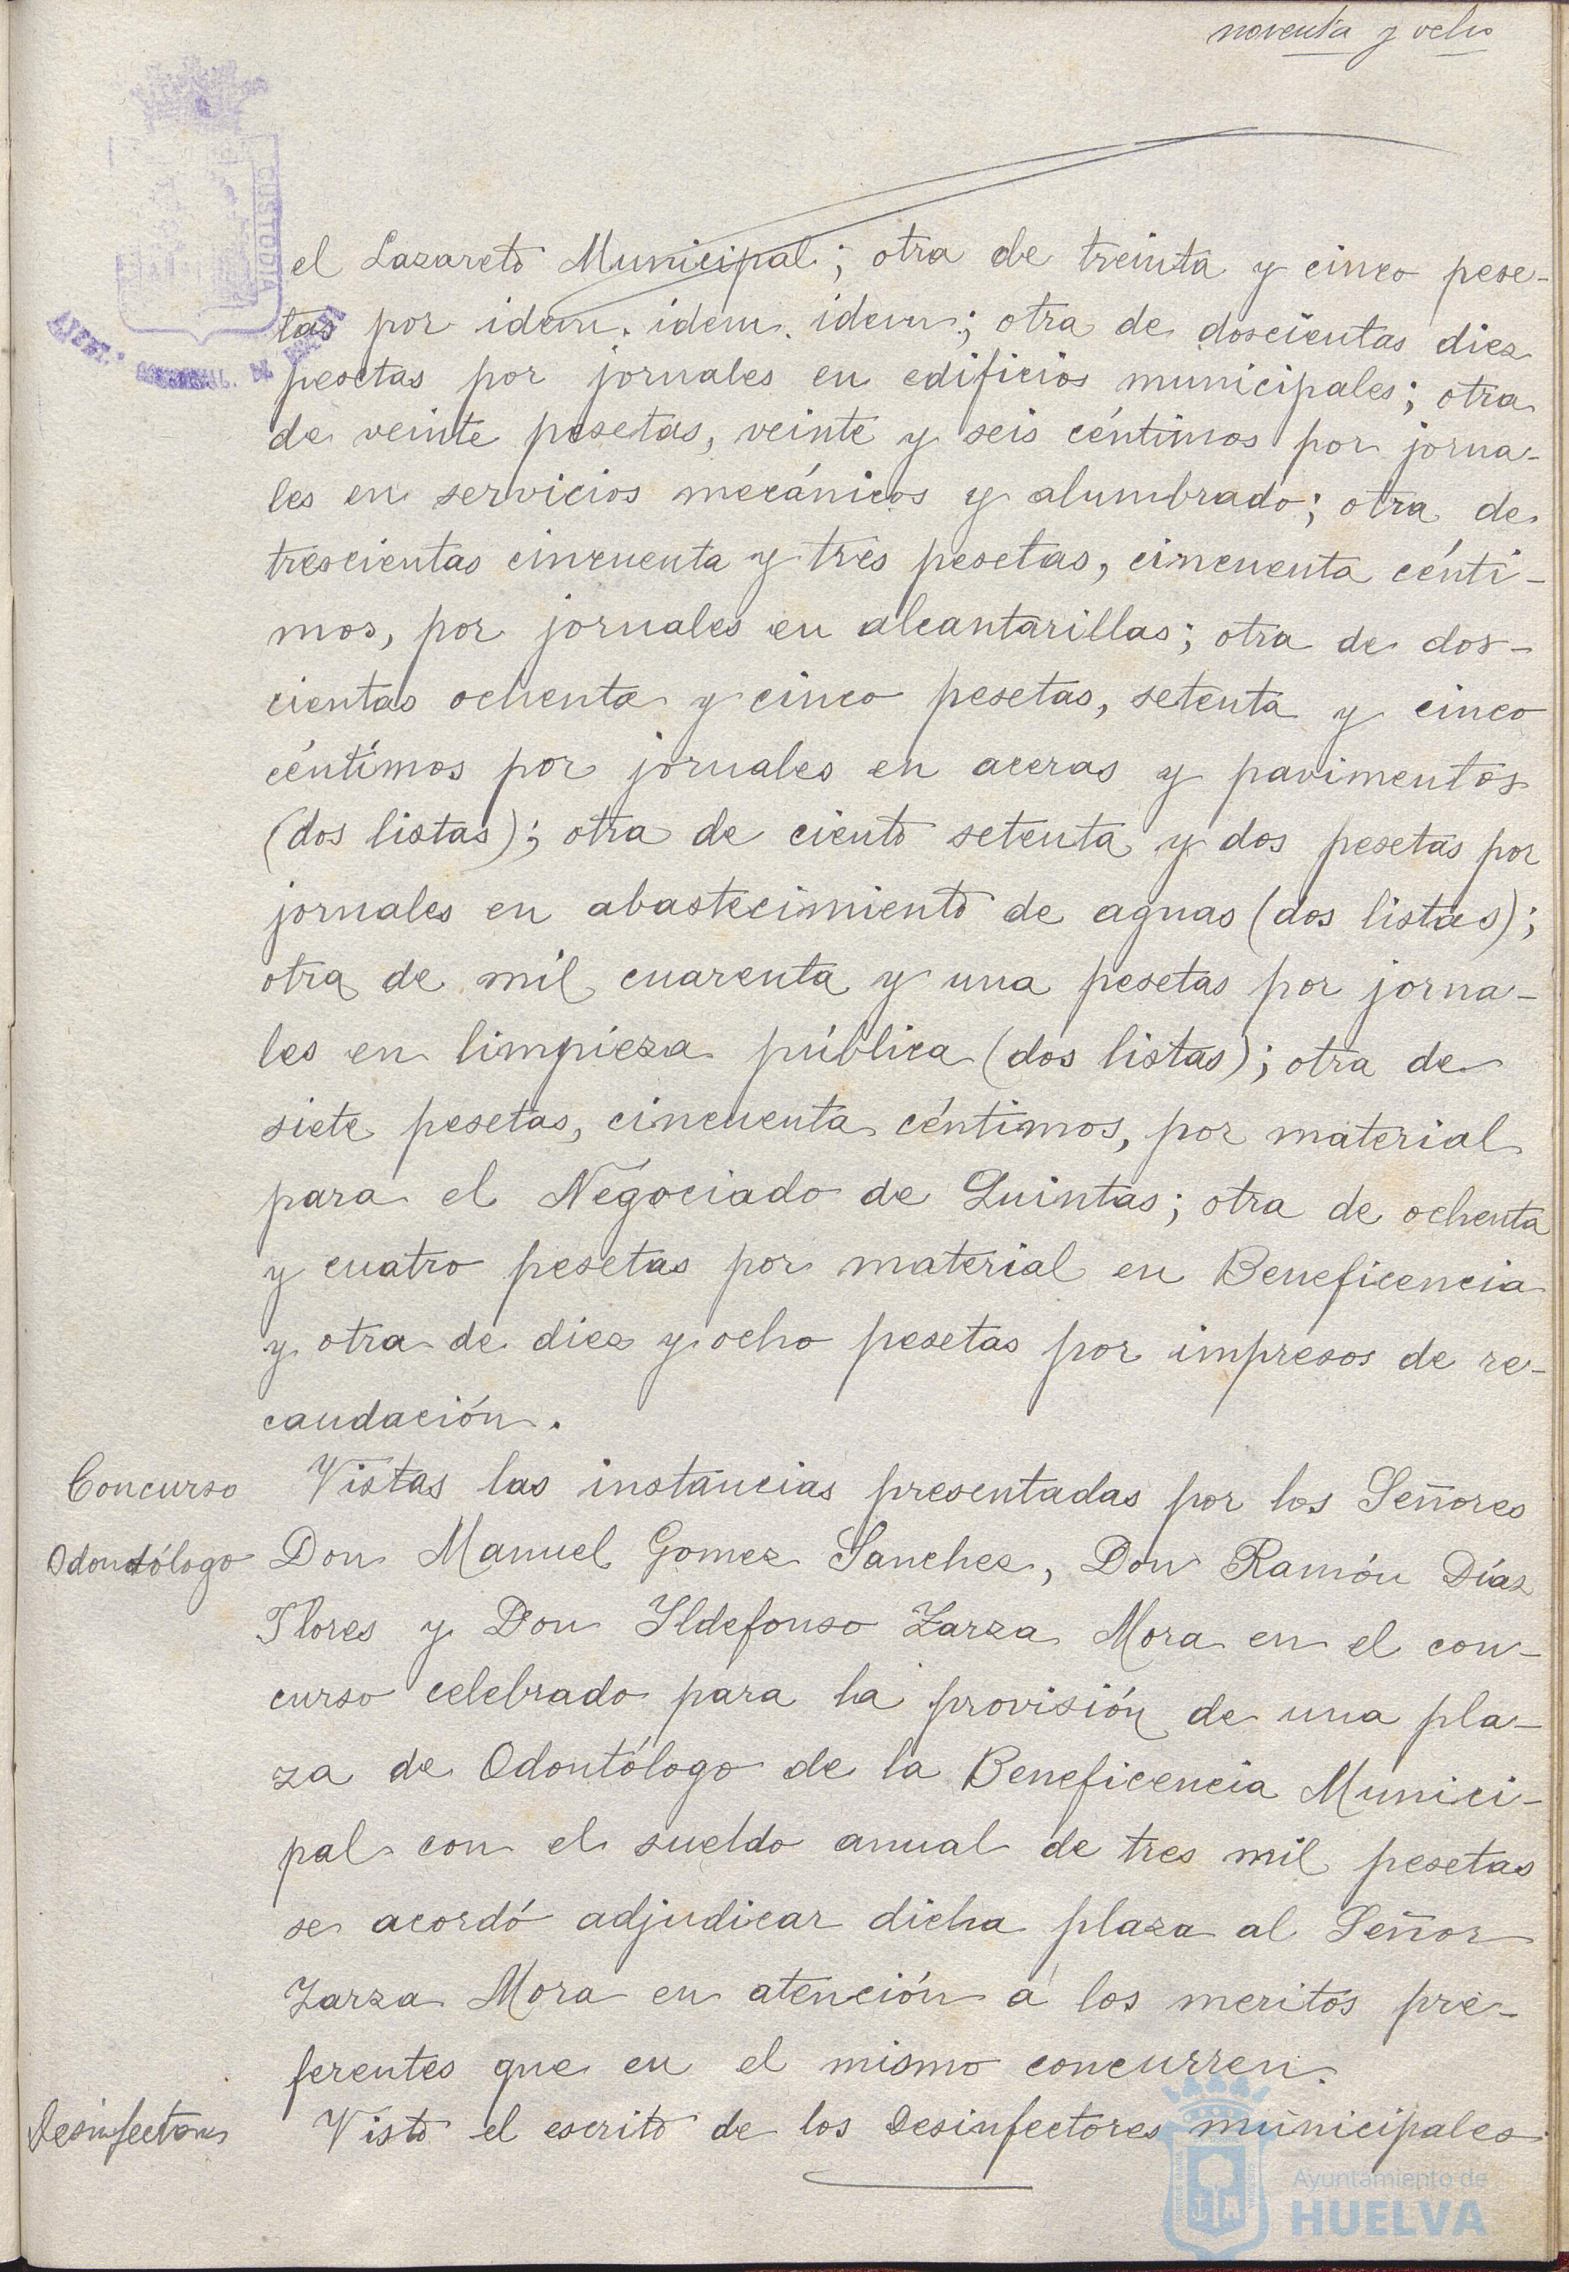 noventa y ocho
CUSTODIA
el Lazareto Municipal; otra de treinta y cinco pese-
tas por idem. idem. idem; otra de doscientas diez
pesetas por jornales en edificios municipales; otra
de veinte pesetas, veinte y seis céntimos por jorna-
les en servicios mecánicos y alumbrado; otra de
trescientas cincuenta y tres pesetas, cincuenta cénti-
mos, por jornales en alcantarillas; otra de dos-
cientas ochenta y cinco pesetas, setenta y cinco
céntimos por jornales en aceras y pavimentos
(dos listas); otra de ciento setenta y dos pesetas por
jornales en abastecimiento de aguas (dos listas);
otra de mil cuarenta y una pesetas por jorna-
les en limpieza pública (dos listas); otra de
siete pesetas, cincuenta céntimos, por material
para el Negociado de Quintas; otra de ochenta
y cuatro pesetas por material en Beneficencia
y otra de diez y ocho pesetas por impresos de re-
caudación.
Concurso
Odontólogo
Vistas las instancias presentadas por los Señores
Don Manuel Gomez Sanchez, Don Ramón Díaz
Flores y Don Ildefonso Zarza Mora en el con-
curso celebrado para la provisión de una pla-
za de Odontólogo de la Beneficencia Munici-
pal con el sueldo anual de tres mil pesetas
se acordó adjudicar dicha plaza al Señor
Zarza Mora en atención á los meritos pre-
ferentes que en el mismo concurren.
Desinfectores
Visto el escrito de los Desinfectores municipales
Ayuntamiento de
HUELVA